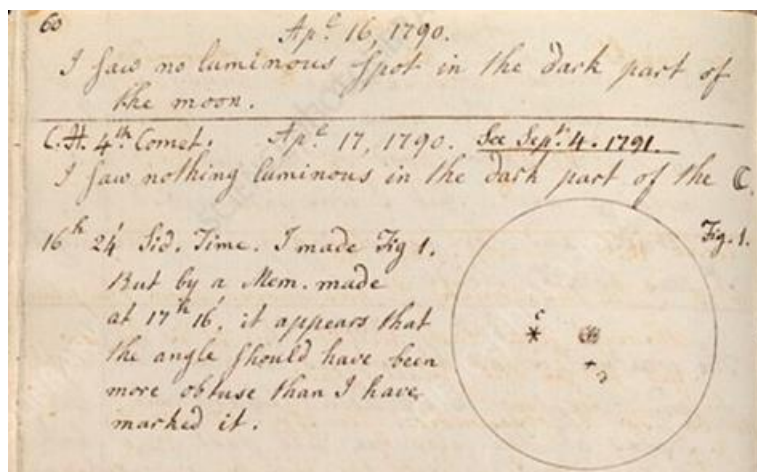 60
Apl. 16, 1790.
I saw no luminous spot in the dark part of
the moon.
C.H. 4th Comet. Apl. 17, 1790. See Sept. 4. 1791.
I saw nothing luminous in the dark part of the ☾.
16h 24' Sid. Time. I made Fig 1.
But by a Mem. made
at 17h 16', it appears that
the angle should have been
more obtuse than I have
marked it.
Fig. 1.
c